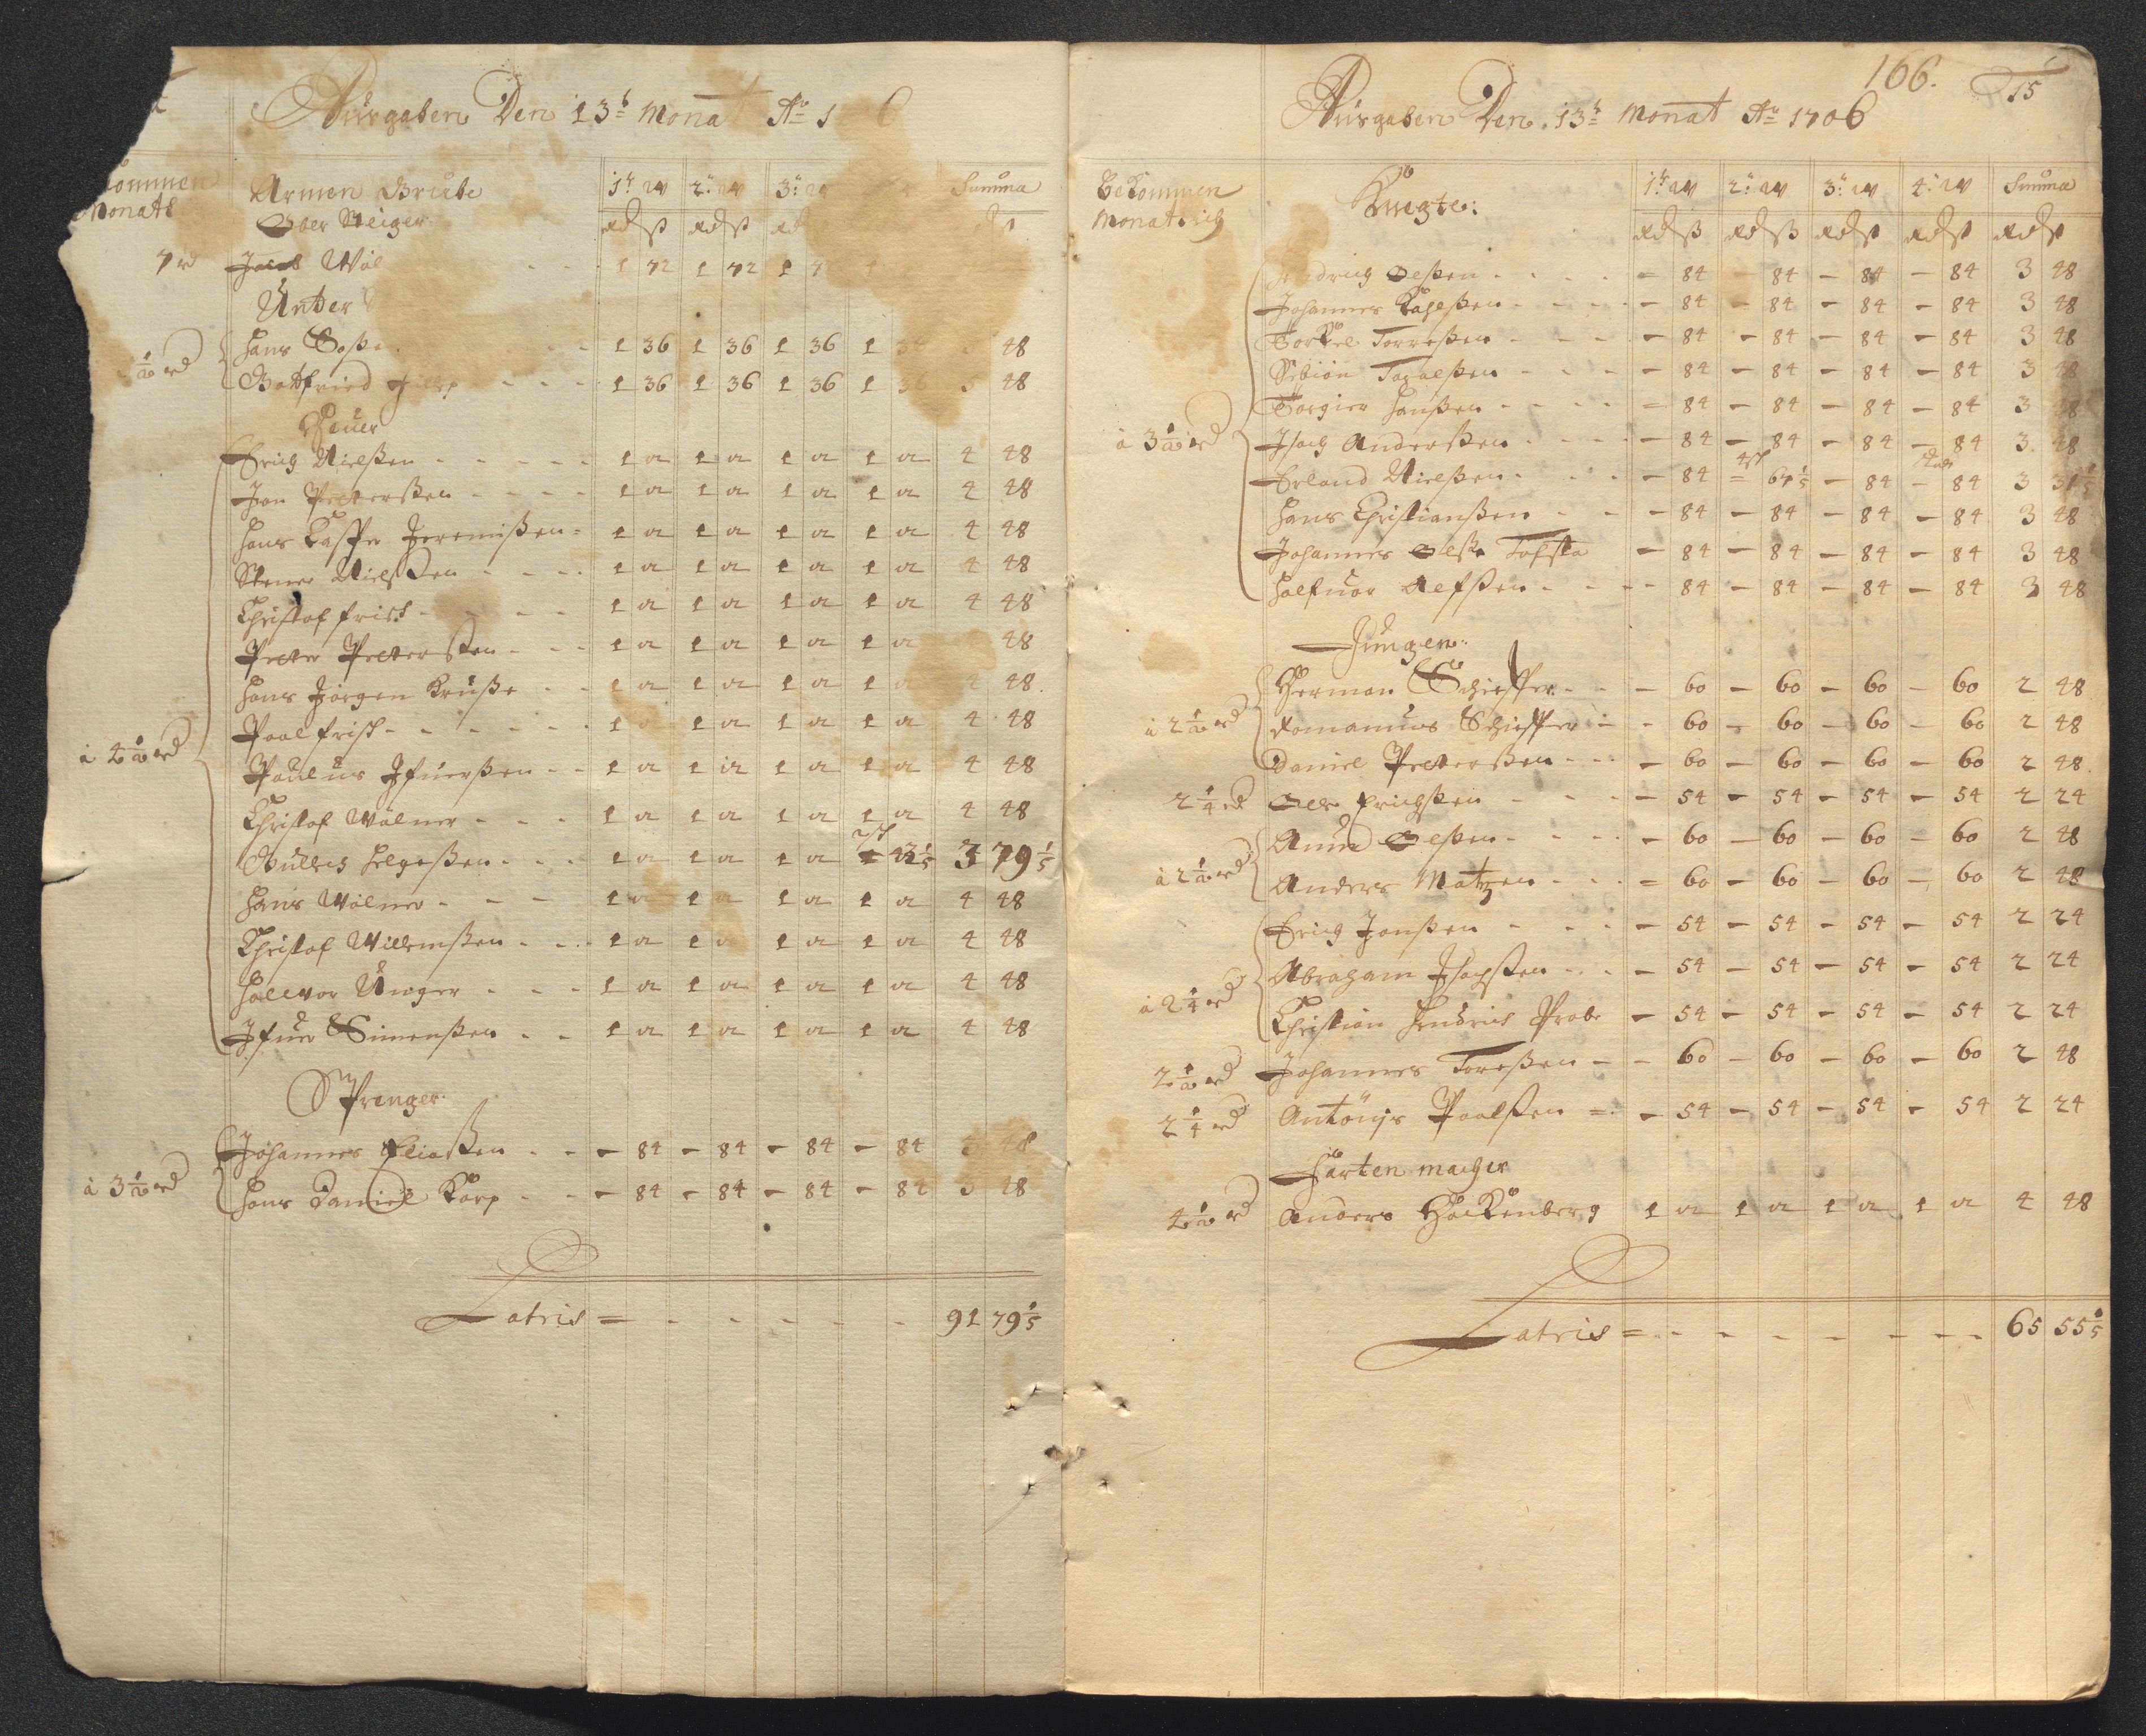 Ausgaben Den 13t Monat Ao 1 6
kommen
Monatl
Armen Grube
Ober Steiger
1t W 2t W 3t W Summa
Rd ß Rd ß Rd
7 rd Jacob Wöl - - - 1 72 1 72 1 7
Unter
Hans 1 36 1 36 1 36 1 36 48
½ rd
Gottfried - - - 1 36 1 36 1 36 1 36 48
Heuer
Erich Nielßen - - - - - 1 12 1 12 1 12 1 12 4 48
Jon Petterßen - - - - 1 12 1 12 1 12 1 12 4 48
Hans Casper Jeremißen - 1 12 1 12 1 12 1 12 4 48
Stener Nielßen - - - - 1 12 1 12 1 12 1 12 4 48
Christof frisch - - - - 1 12 1 12 1 12 1 12 4 48
Petter Petterßen - - - 1 12 1 12 1 12 1 12 48
Hans Jörgen Kruße - - 1 12 1 12 1 12 1 12 4 48
Paal frisch - - - - - - 1 12 1 12 1 12 1 12 4 48
à 4½ rd
Paulus Ifuerßen - - 1 12 1 12 1 12 1 12 4 48
Christof Wölner - - - 1 12 1 12 1 12 1 12 4 48
Gullich Helgeßen - - - 1 12 1 12 1 12 3 79 1/5
Hans Wölner - - - 1 12 1 12 1 12 1 12 4 48
Christof Willemßen - - - 1 12 1 12 1 12 1 12 4 48
Hallvor Unger - - - 1 12 1 12 1 12 1 12 4 48
Ifuer Simenßen - - 1 12 1 12 1 12 1 12 4 48
Sprenger
Johannes Eliaßen - - - 84 - 84 - 84 - 84 3 48
à 3½ rd
Hans Daniel Körp - - - 84 - 84 - 84 - 84 3 48
Latris = - - - - - 91 79 1/5
166. 15
Ausgaben Den 13t Monat Ao 1706
Bekommen
Monatlich
Knegte:
1t W 2t W 3t W 4t W Summa
Rd ß Rd ß Rd ß Rd ß Rd ß
Hendrich Olßen - - - - - 84 - 84 - 84 - 84 3 48
Johannes Kahlßen - - - - 84 - 84 - 84 - 84 3 48
Torkel Torreßen - - - - 84 - 84 - 84 - 84 3 48
Sebiön - - - 84 - 84 - 84 - 84 3 48
Torgier Hanßen - - - - - 84 - 84 - 84 - 84 3 48
à 3½ rd
Isach Anderßen - - - - 84 - 84 - 84 - 84 3 48
Erland Nielßen - - - - 84 = 67 1/5 - 84 - 84 3 31 1/5
Hans Christianßen - - - 84 - 84 - 84 - 84 3 48
Johannes Olße Tofsta - 84 - 84 - 84 - 84 3 48
Halfuor Alfßen - - - - 84 - 84 - 84 - 84 3 48
Jungen:
Herman Schieffer - - - 60 - 60 - 60 - 60 2 48
à 2½ rd
Romanus Schieffer - - 60 - 60 - 60 - 60 2 48
Daniel Petterßen - - - 60 - 60 - 60 - 60 2 48
2¼ rd Ole Erichßen - - - - 54 - 54 - 54 - 54 2 24
Anun Olßen - - - - 60 - 60 - 60 - 60 2 48
à 2½ rd
Anders Matzen - - - - 60 - 60 - 60 - 60 2 48
Erich Jonßen - - - - 54 - 54 - 54 - 54 2 24
Abraham Isachßen - - - - 54 - 54 - 54 - 54 2 24
à 2¼ rd
Christian Hendrich Probe - 54 - 54 - 54 - 54 2 24
2½ rd Johannes Toreßen - - 60 - 60 - 60 - 60 2 48
2¼ rd Antönÿs Paalßen = - 54 - 54 - 54 - 54 2 24
Härten macher
4½ rd Anders Hackenberg 1 12 1 12 1 12 1 12 4 48
Latris = - - - - - - - 65 55 1/5